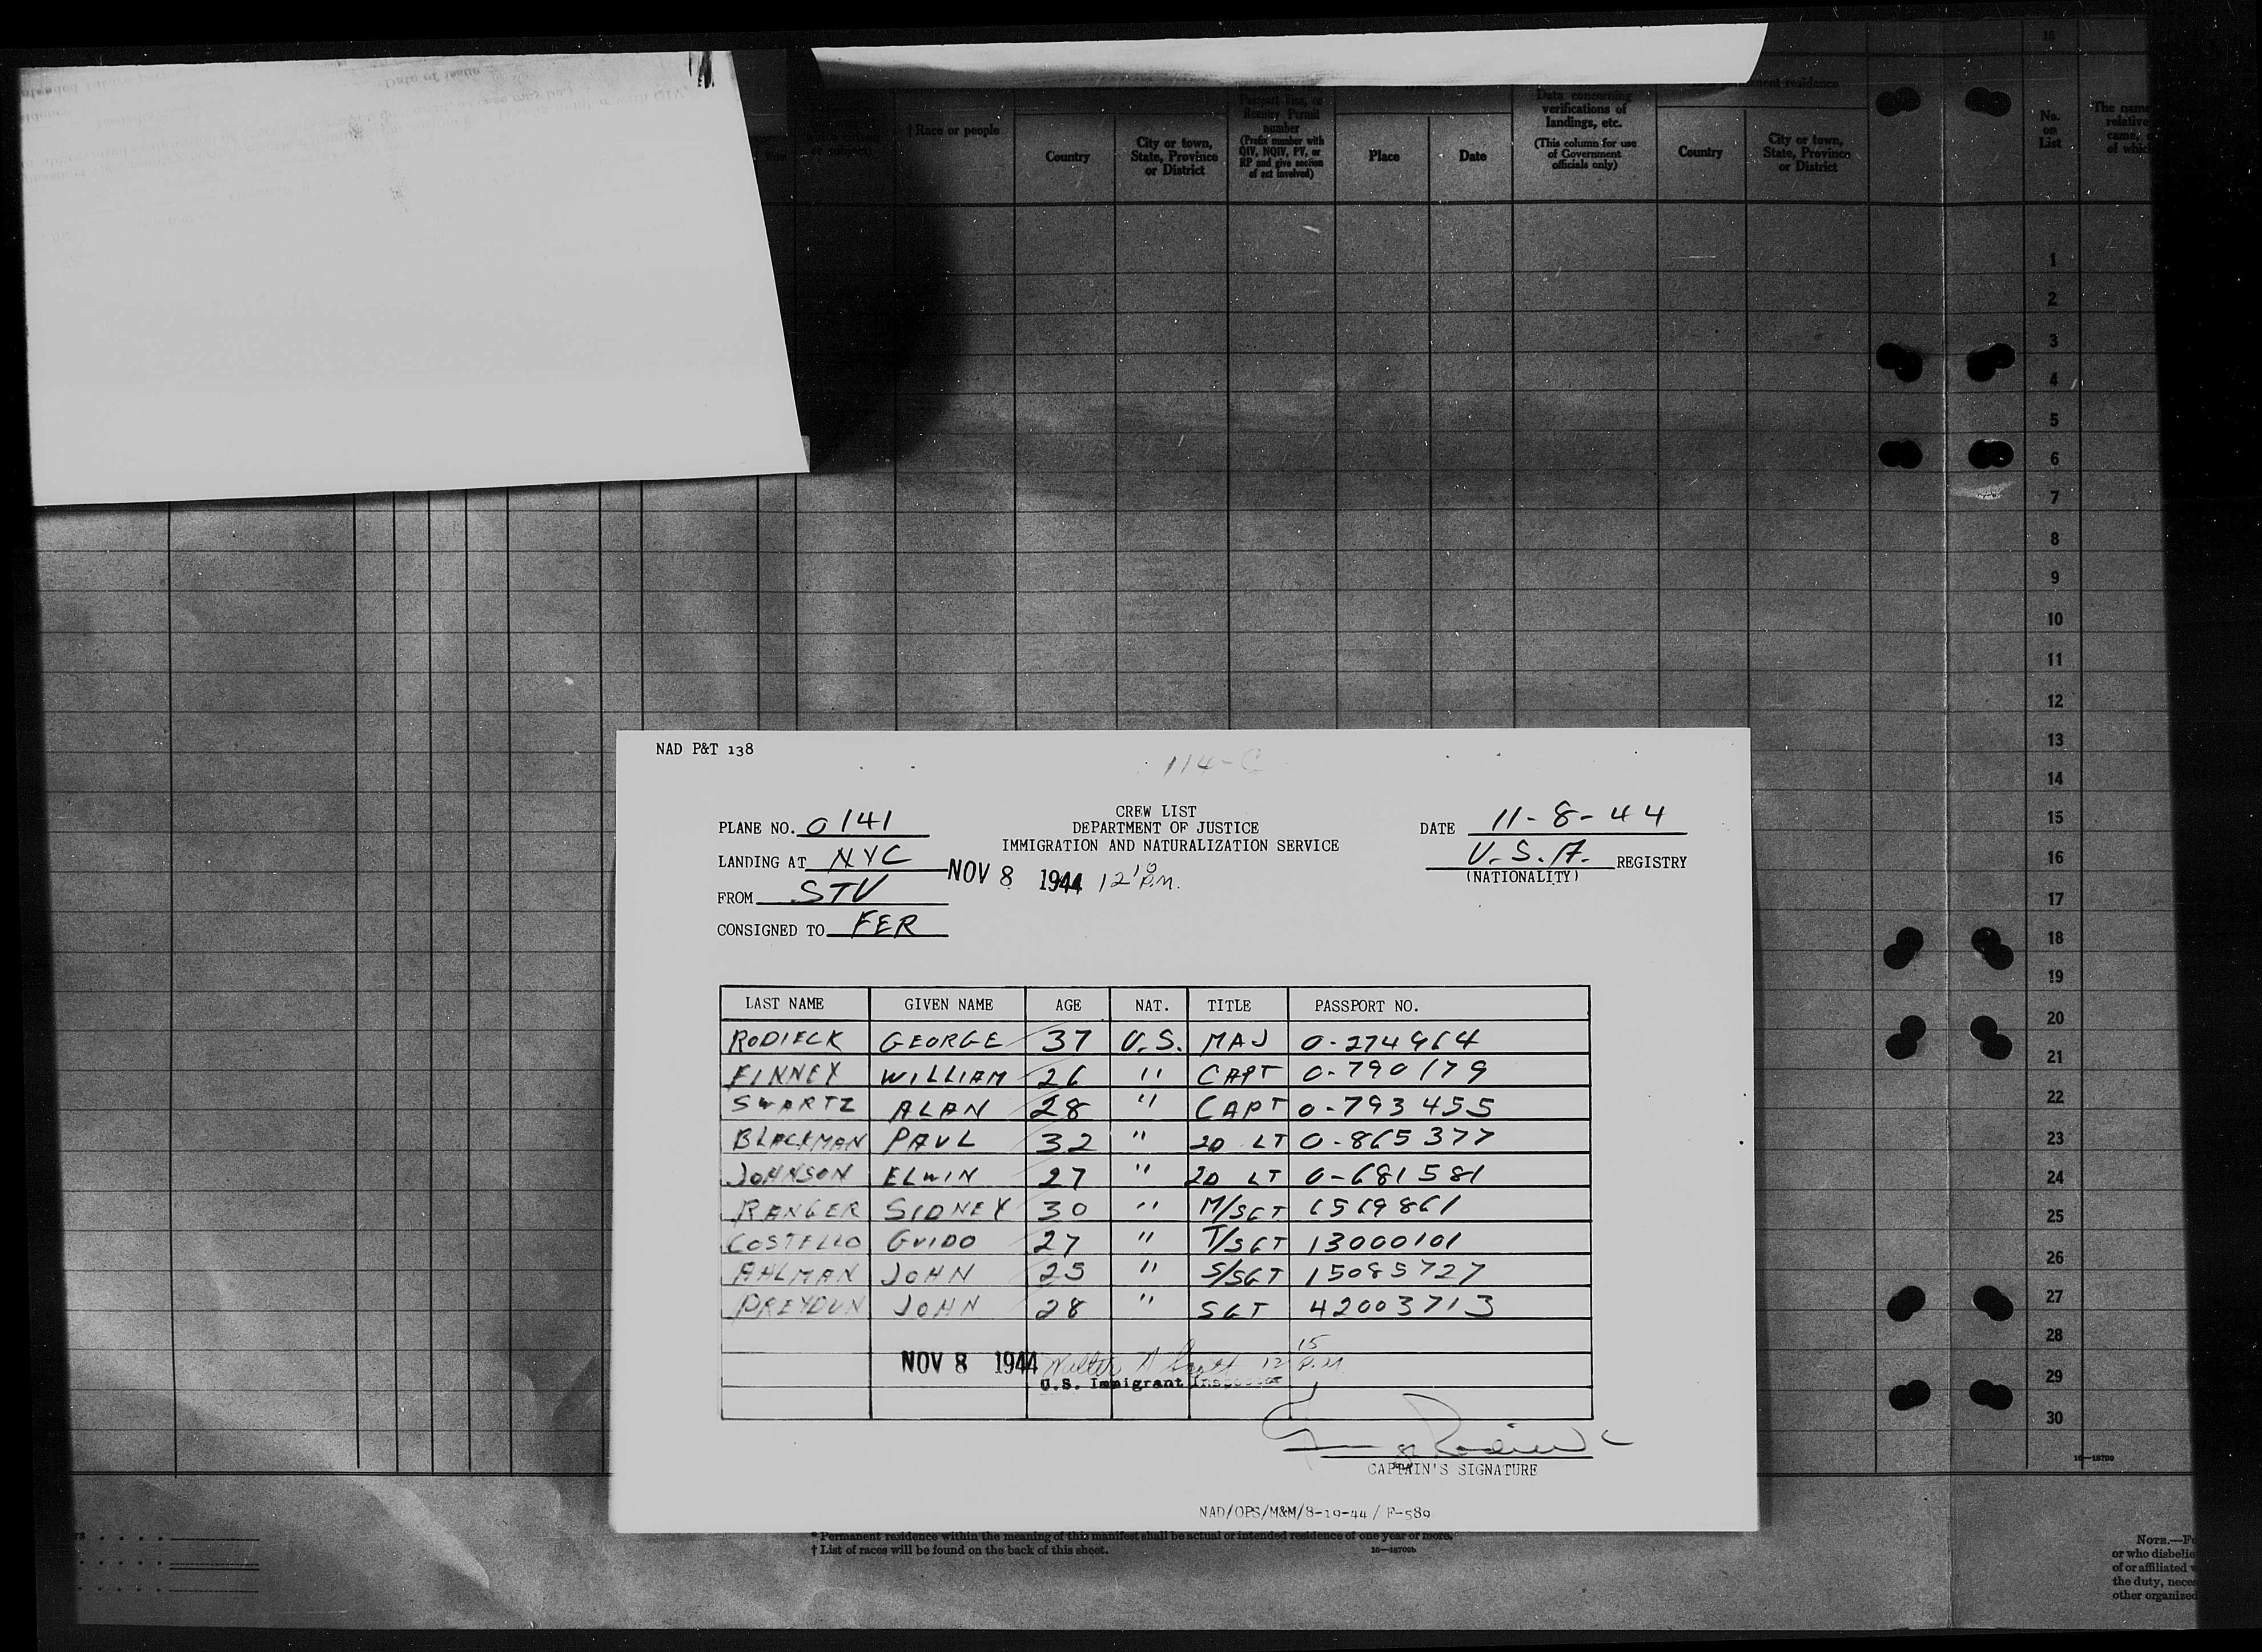 Date of issue
16
† Race or people
Country
City or town,
State, Province
or District
Reentry Permit
number
(Prefix number with
QIV, NQIV, PV, or
RP and give section
of act involved)
Place
Date
Data concerning
verifications of
landings, etc.
(This column for use
of Government
officials only)
Country
City or town,
State, Province
or District
No.
on
List
The name
relative
came,
of which
1
2
3
4
5
6
7
8
9
10
11
12
13
14
15
16
17
18
19
20
21
22
23
24
25
26
27
28
29
30
NAD P&T 138
114-C
CREW LIST
DEPARTMENT OF JUSTICE
IMMIGRATION AND NATURALIZATION SERVICE
PLANE NO. 0141
LANDING AT NYC
FROM STV
CONSIGNED TO FER
NOV 8 1944 12 10 P.M.
DATE 11-8-44
U.S.A. REGISTRY
(NATIONALITY)
LAST NAME GIVEN NAME AGE NAT. TITLE PASSPORT NO.
RODIECK GEORGE 37 U.S. MAJ 0-274964
FINNEY WILLIAM 26 " CAPT 0-790179
SWARTZ ALAN 28 " CAPT 0-793455
BLACKMAN PAUL 32 " 2D LT 0-865377
JOHNSON ELWIN 27 " 2D LT 0-681581
RANGER SIDNEY 30 " M/SGT 6569861
COSTELLO GUIDO 27 " T/SGT 13000101
AHLMAN JOHN 25 " S/SGT 15085727
PREYDUN JOHN 28 " SGT 42003713
NOV 8 1944 Walter 12 15 P.M
U.S. Immigrant Inspector
George Rodieck
CAPTAIN'S SIGNATURE
NAD/OPS/M&M/8-19-44/F-580
* Permanent residence within the meaning of this manifest shall be actual or intended residence of one year or more.
† List of races will be found on the back of this sheet.
16—18709b
16—18709
NOTE.—Fu
or who disbelie
of or affiliated w
the duty, neces
other organized